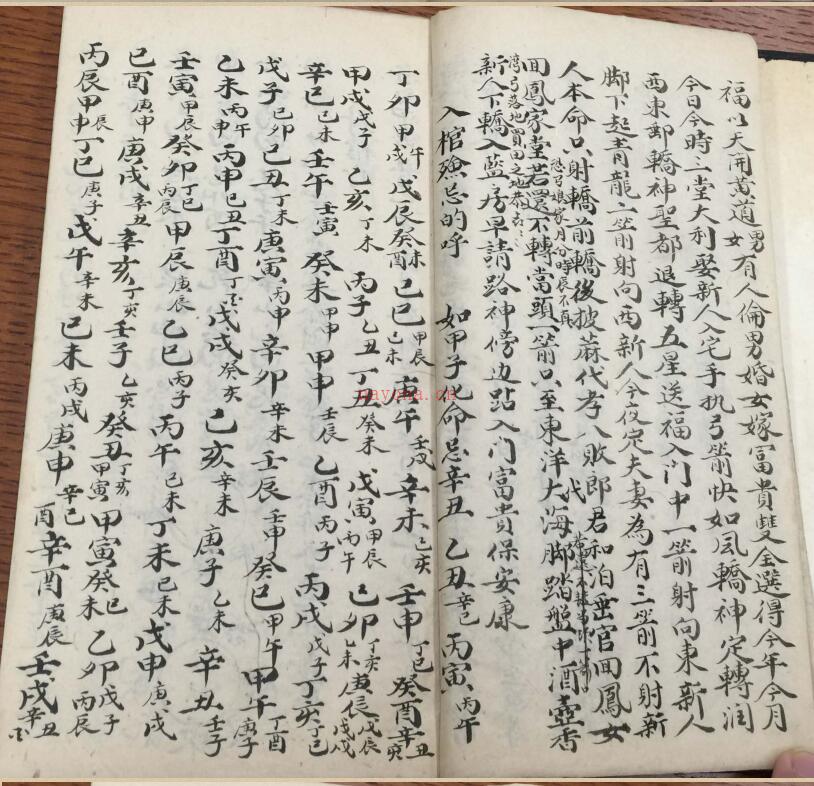 福以天開黃道男女有人倫男婚女嫁富貴雙全選得今年今月
今日今時三堂大利娶新人入宅手执弓箭快如风轎神定轉润
西東郵轎神聖都退轉五星送福入门中一箭射向東新人
脚下起青龍二箭射向西新人今仪定夫妻為有三箭不射新
人本命只射轎前轎後披蔴代孝八敗郎君和泊垂官回鳳女
回鳳家堂若還不轉當頭一箭只至東洋大海脚踏盤中酒壺香
湾弓落地買田之地
新人下轎入蓝房早請路神傍边跕入门富貴保安康
入棺殮忌的呼 如甲子兑命忌辛丑 乙丑辛巳 丙寅丙午
丁卯甲戌午 戊辰癸酉未 己巳甲辰己未 庚午壬戌 辛未己亥 壬申丁巳 癸酉辛亥丑
甲戌戊子 乙亥丁未 丙子乙丑 丁丑癸未 戊寅甲辰丙午 己卯丁亥乙未 庚辰戊辰戊戌
辛巳己未 壬午壬寅 癸未甲申 甲申壬辰 乙酉丙子 丙戌戊子 丁亥丁巳
戊子己卯 己丑丁未 庚寅丙申 辛卯辛未 壬辰壬申 癸巳甲午 甲午丁酉庚子
乙未丙午丙申 丙申己丑 丁酉丁亥 戊戌癸亥 己亥辛未 庚子乙未 辛丑壬子
壬寅甲辰 癸卯丁巳丙辰 甲辰庚辰 乙巳丙子 丙午己未 丁未己未 戊申庚戌
己酉庚申 庚戌辛丑 辛亥丁亥 壬子乙亥 癸丑丁亥甲寅 甲寅癸未巳 乙卯戊子丙辰
丙辰甲申辰 丁巳庚子 戊午辛未 己未丙戌 庚申辛巳酉 辛酉庚辰 壬戌辛丑
nayona.cn